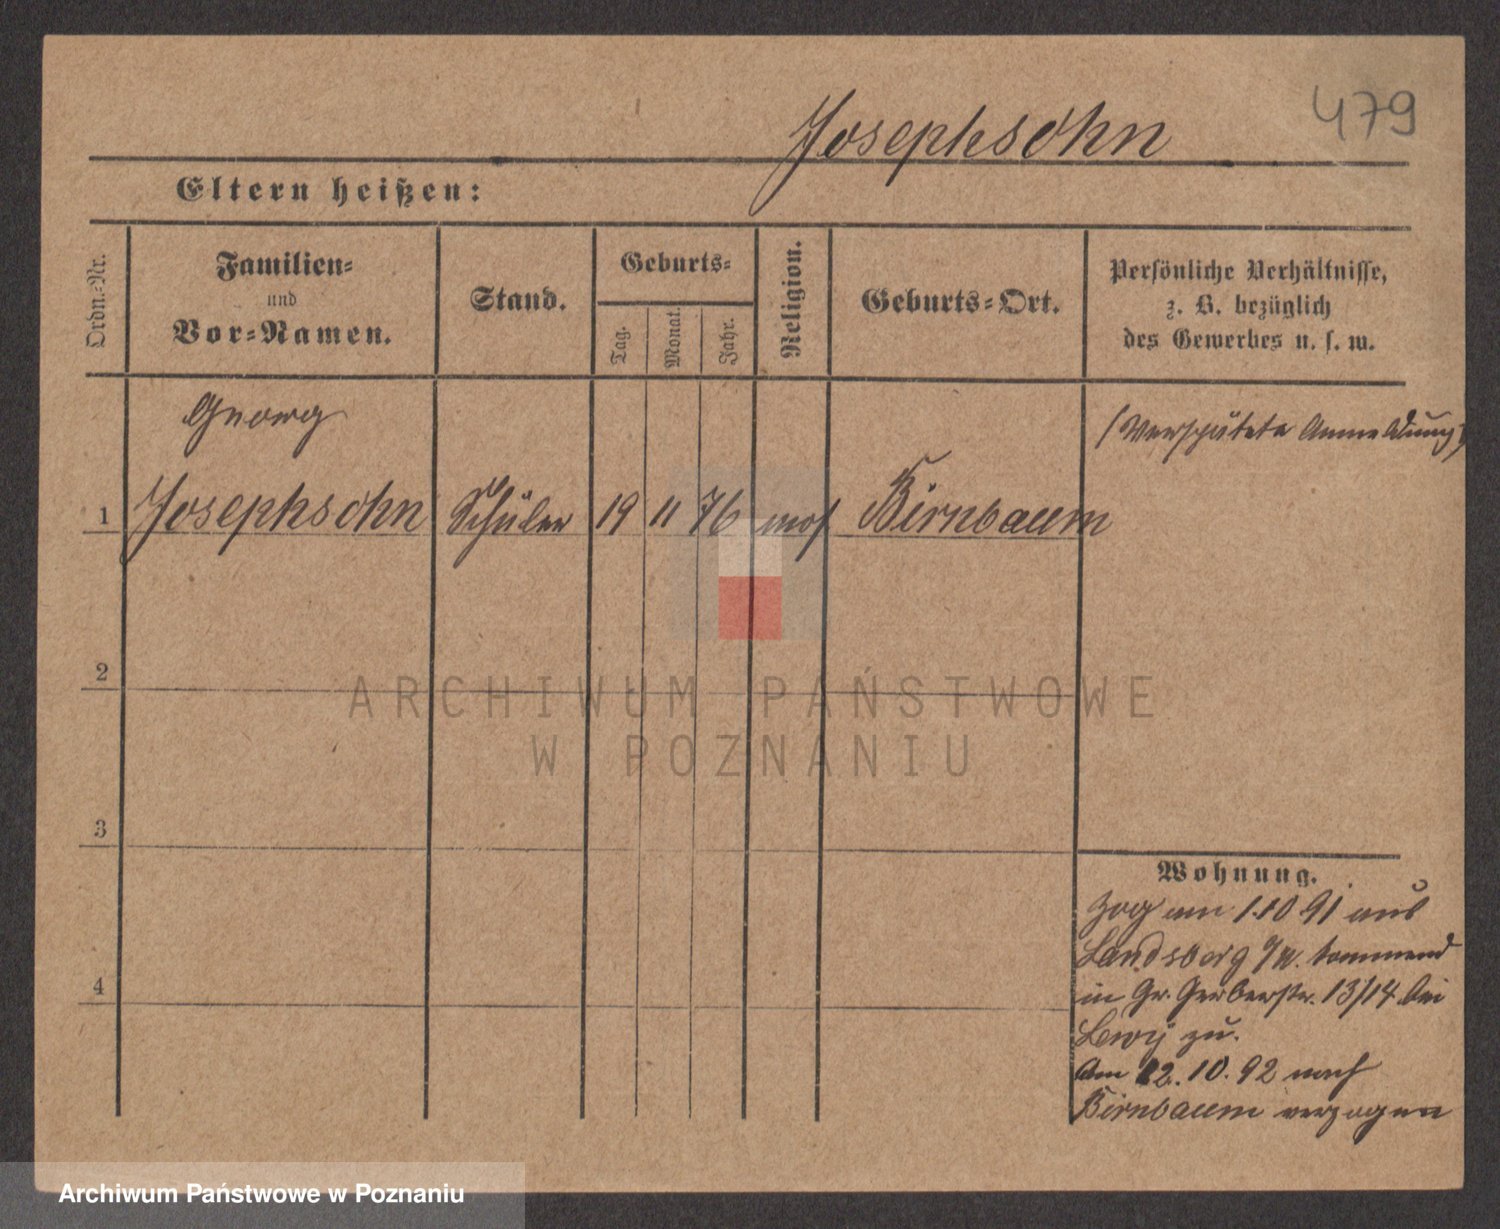 479
Josephsohn
Eltern heißen:
Ordn.-Nr.
Familien-
und
Vor-Namen.
Stand.
Geburts-
Tag.
Monat.
Jahr.
Religion.
Geburts-Ort.
Persönliche Verhältnisse,
z. B. bezüglich
des Gewerbes u. s. w.
Georg
(Verspätete Anmeldung)
1 Josephsohn Schüler 19 11 76 mos Birnbaum
2
ARCHIWUM PAŃSTWOWE
W POZNANIU
3
Wohnung.
Zog am 1.10 91 aus
Landsberg a/W. kommend
in Gr. Gerberstr. 13/14 bei
4
Lewy zu.
Am 12.10.92 nach
Birnbaum verzogen
Archiwum Państwowe w Poznaniu